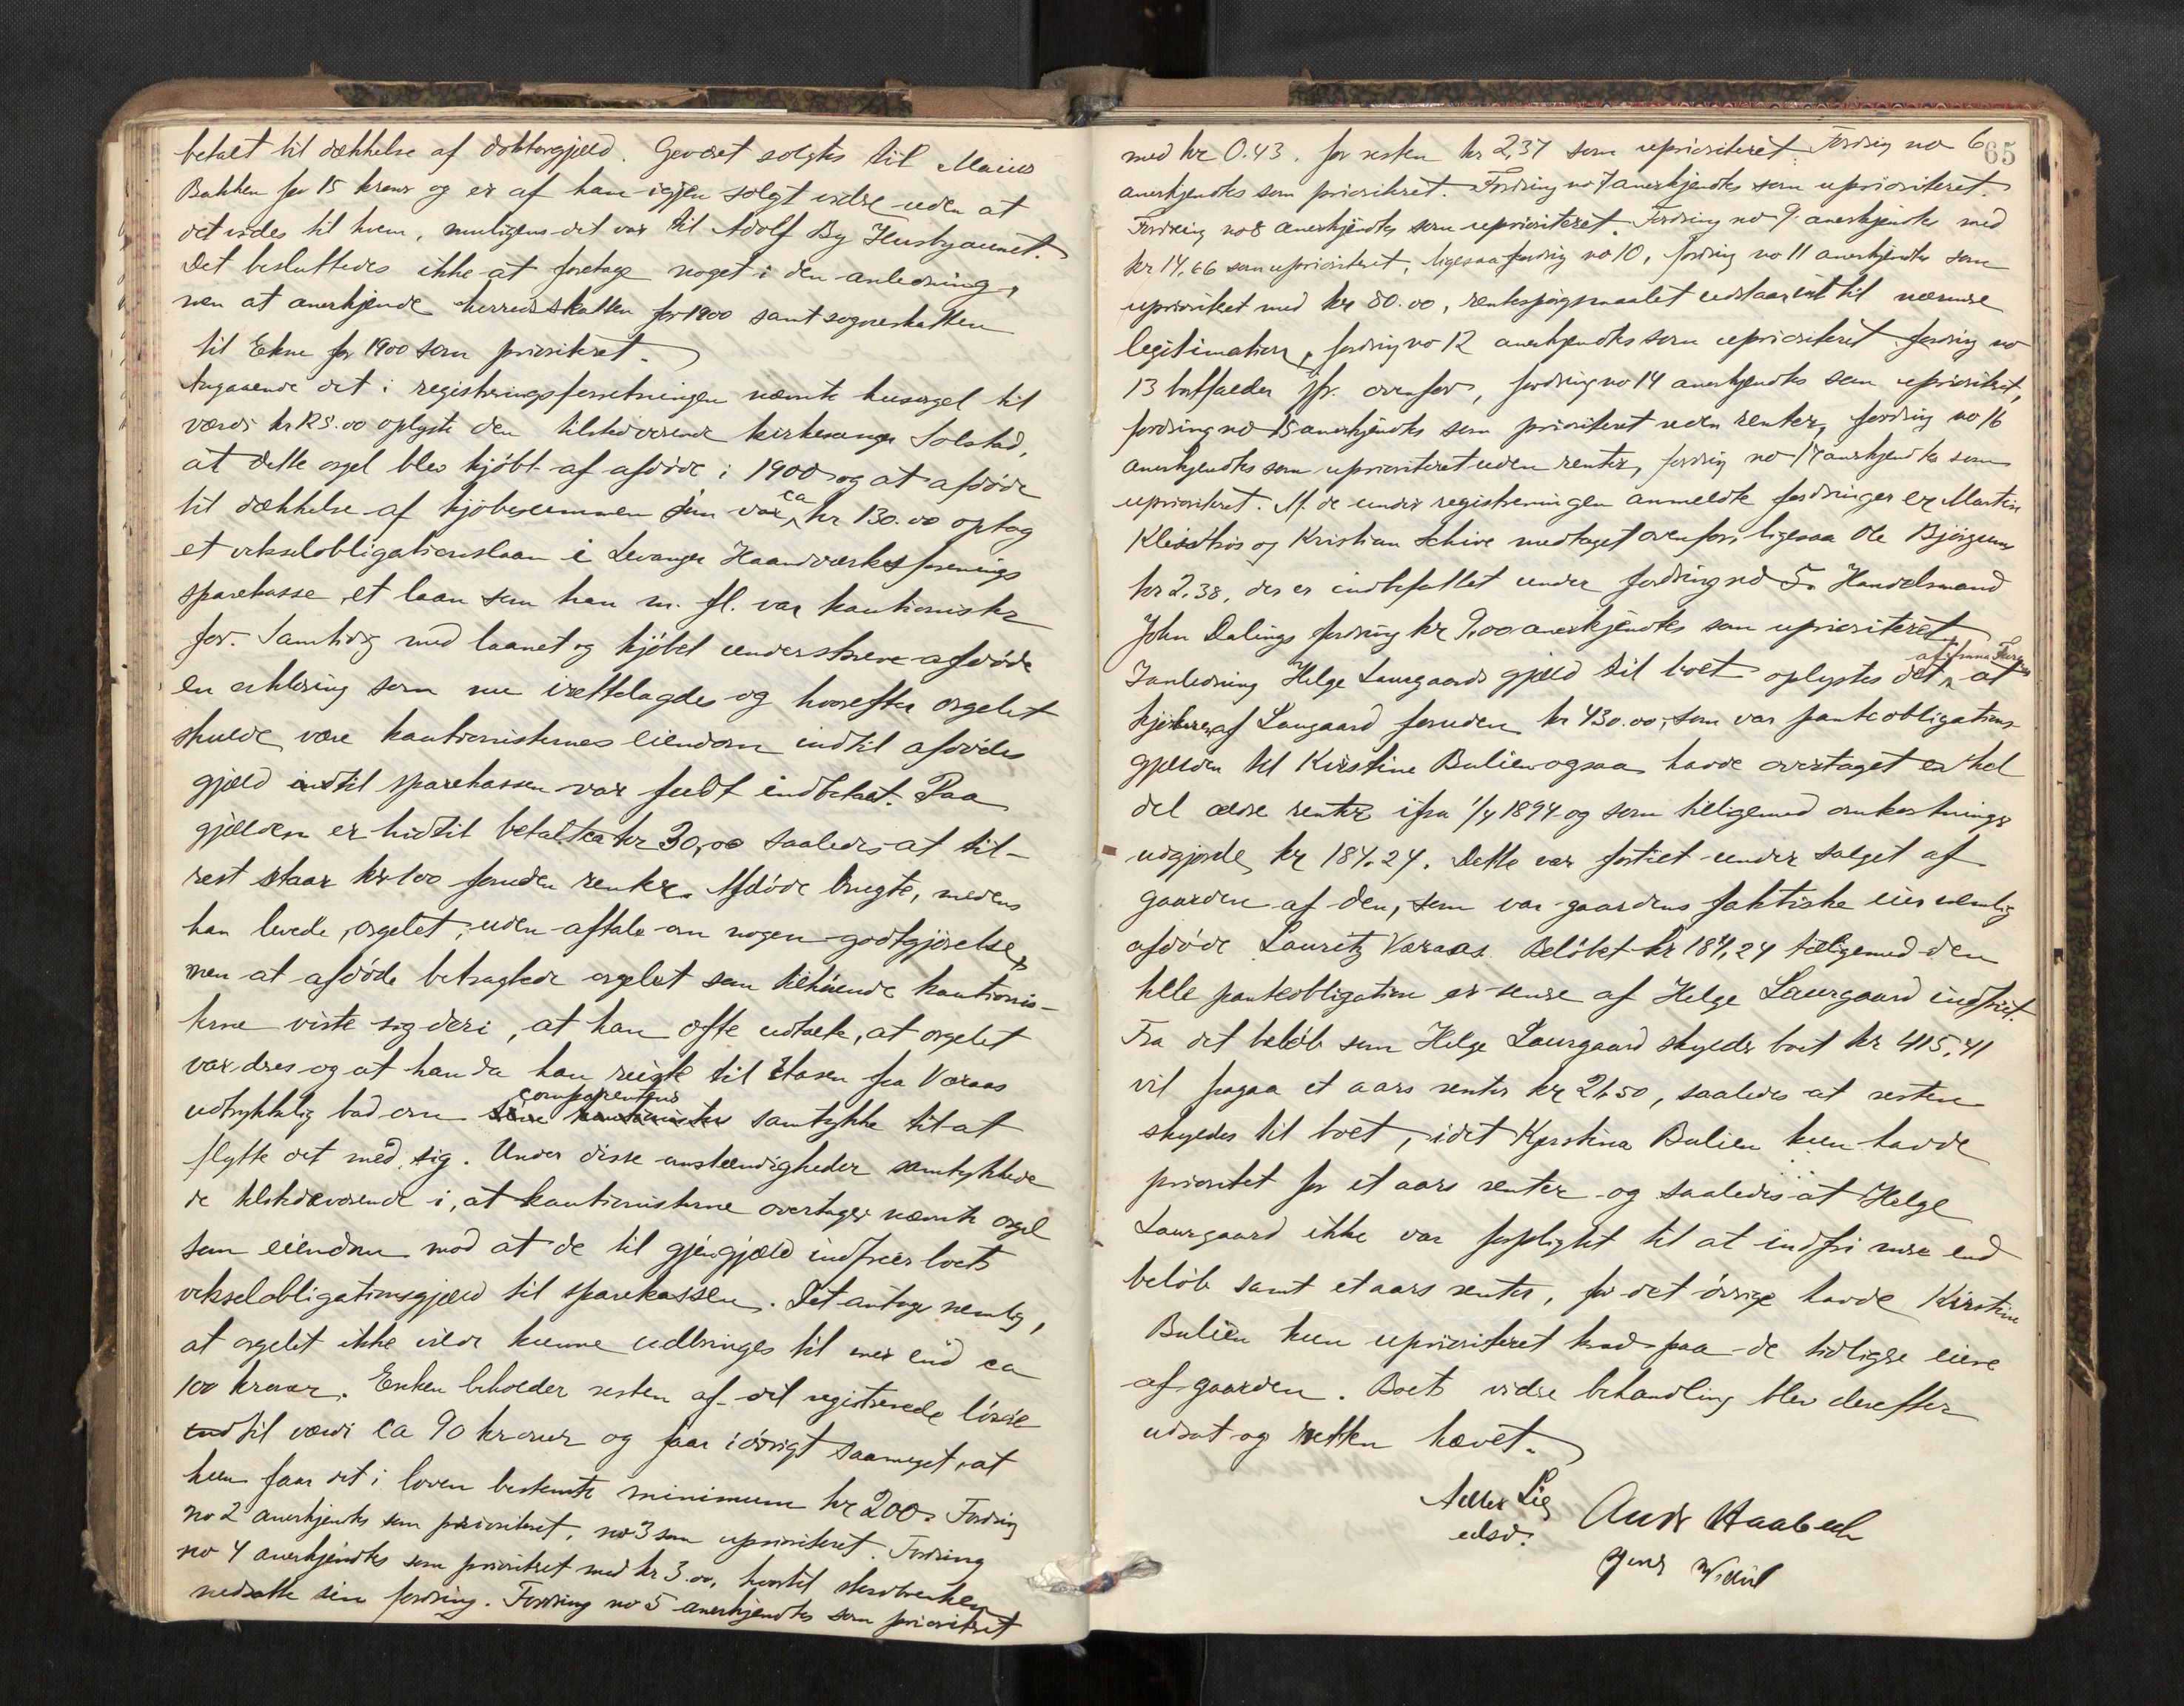 betalt til dækkelse af doktorgjæld. Geværet solgtes til Marius
Bakken for 15 kroner og er af ham igjen solgt videre uden at
det vides til hvem, muligens det var til Adolf By Husbyaunet.
Det besluttedes ikke at foretage noget i den anledning,
men at anerkjende herredsskatten for 1900 samt sogneskatten
til Ekne for 1900 som prioriteret.
Angaaende det i registreringsforretningen nævnte husorgel til
værdi kr 125.00 oplyste den tilstedeværende kirkesanger Solstad,
at dette orgel blev kjöbt af afdöde i 1900 og at afdöde
til dækkelse af kjöbesummen som var ca kr 130.00 optog
et vekselobligationslaan i Levanger Haandværkerforenings
sparekasse, et laan som han m. fl. var kautionister
for. Samtidig med laanet og kjöbet underskrev afdöde
en erklæring som nu irettelagdes og hvorefter orgelet
skulde være kautionisternes eiendom indtil afdödes
gjæld indtil sparekassen var fuldt indbetalt. Paa
gjælden er hidtil betalt ca kr 30,00 saaledes at til-
rest staar kr 100 foruden renter. Afdöde brugte, medens
han levede, orgelet, uden aftale om nogen godtgjörelse,
men at afdöde betragtede orgelet som tilhörende kautionis-
terne viste sig deri, at han ofte udtalte, at orgelet
var deres og at han da han reiste til Aasen fra Væraas
udtrykkelig bad om comparentens samtykke til at
flytte det med sig. Under disse omstændigheder samtykkede
de tilstedeværende i, at kautionisterne overtager nævnte orgel
som eiendom mod at de til gjengjæld indfrier boets
vekselobligationsgjæld til sparekassen. Det antoges nemlig,
at orgelet ikke vilde kunne udbringes til mer end ca
100 kroner. Enken beholder resten af det registrerede lösöre
til værdi ca 90 kroner og faar i övrigt saameget, at
hun faar det i loven bestemte minimum kr 200. Fordring
no 2 anerkjendtes som prioriteret, no 3 som uprioriteret. Fordring
no 4 anerkjendtes som prioriteret med kr 3.00, hvortil
nedsatte sin fordring. Fordring no 5 anerkjendtes som prioriteret
65
med kr 0.43, for resten kr 2,37 som uprioriteret. Fordring no 6
anerkjendtes som prioriteret. Fordring no 7 anerkjendtes som uprioriteret.
Fordring no 8 anerkjendtes som uprioriteret. Fordring no 9 anerkjendtes med
kr 14.66 som uprioriteret, ligesaa fordring no 10, fordring no 11 anerkjendtes som
uprioriteret med kr 80.00, rentespörgsmaalet udstaar til nærmere
legitimation, fordring no 12 anerkjendtes som uprioriteret, fordring no
13 bortfalder jfr. ovenfor, fordring no 14 anerkjendtes som uprioriteret,
fordring no 15 anerkjendtes som prioriteret uden renter, fordring no 16
anerkjendtes som uprioriteret uden renter, fordring no 17 anerkjendtes som
uprioriteret. Af de under registreringen anmeldte fordringer er Martin
og Kristian Schive medtaget ovenfor, ligesaa Ole Bjørgum
kr 2.38, der er indbefattet under fordring no 5. Handelsmand
John Dalings fordring kr 9,00 anerkjendtes som uprioriteret.
I anledning Helge Laurgaards gjæld til boet oplystes det, at
kjöberen af Laugaard foruden kr 430.00, som var panteobligations-
gjælden til Kirstine Bulien ogsaa havde overtaget en hel
del ældre renter ifra 1/4 1894 og som tilligemed omkostninger
udgjorde kr 184.24. Dette var fortiet under salget af
gaarden af den, som var gaardens faktiske eier nemlig
afdöde Lauritz Væraas. Belöbet kr 184,24 tilligemed den
hele panteobligation er senere af Helge Laurgaard indfriet.
Fra det belöb som Helge Laurgaard skylder boet kr 415,41
vil fragaa et aars renter kr 21,50, saaledes at resten
skyldes til boet, idet Kjerstina Bulien kun havde
prioritet for et aars renter og saaledes at Helge
Laurgaard ikke var forpligtet til at indfri mere end
belöb samt et aars renter, for det övrige havde Kirstine
Bulien kun uprioriteret krav paa de tidligere eiere
af gaarden. Boets videre behandling blev derefter
udsat og retten hævet.
Adler Lie
edsv.
And Haabeth
Jens